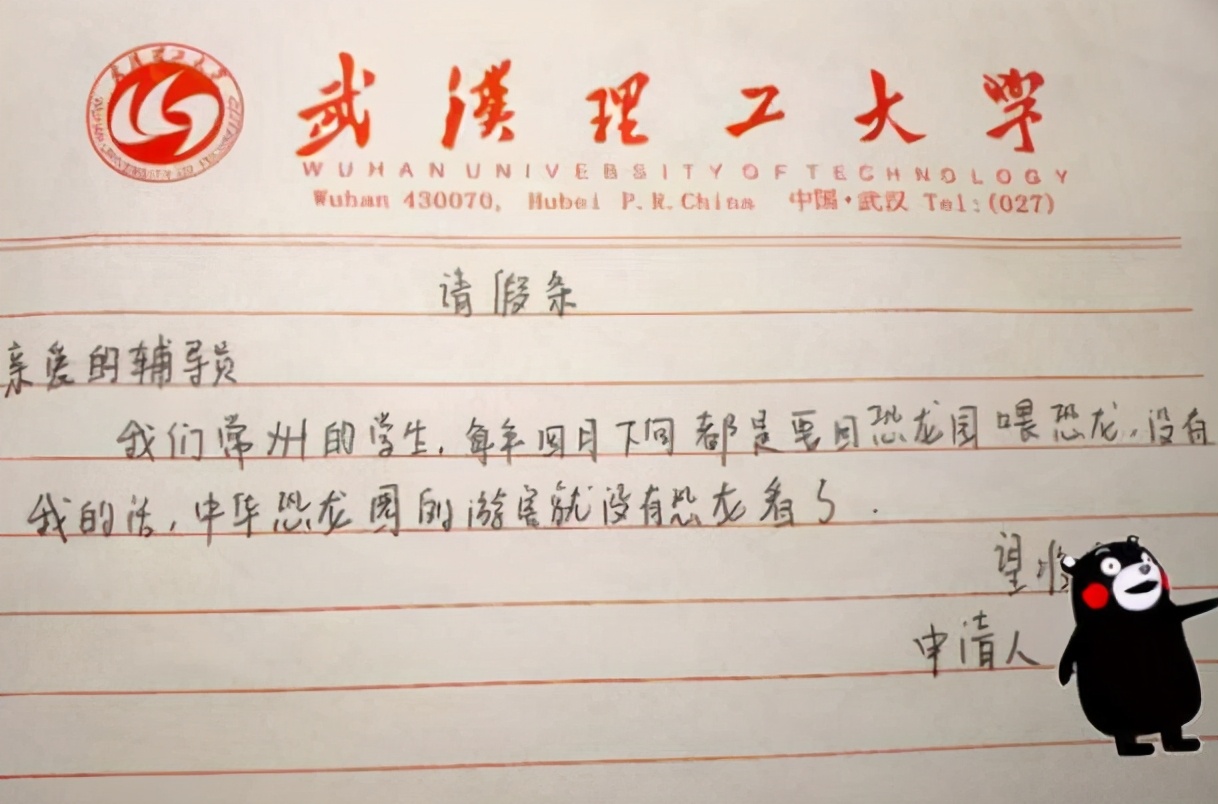 武漢理工大学
WUHAN UNIVERSITY OF TECHNOLOGY
Wuhan 430070, Hubei P.R.China 中国·武汉 Tel:(027)
请假条
亲爱的辅导员
我们常州的学生,每年四月下旬都是要回恐龙园喂恐龙,没有
我的话,中华恐龙园的游客就没有恐龙看了.
望
申请人